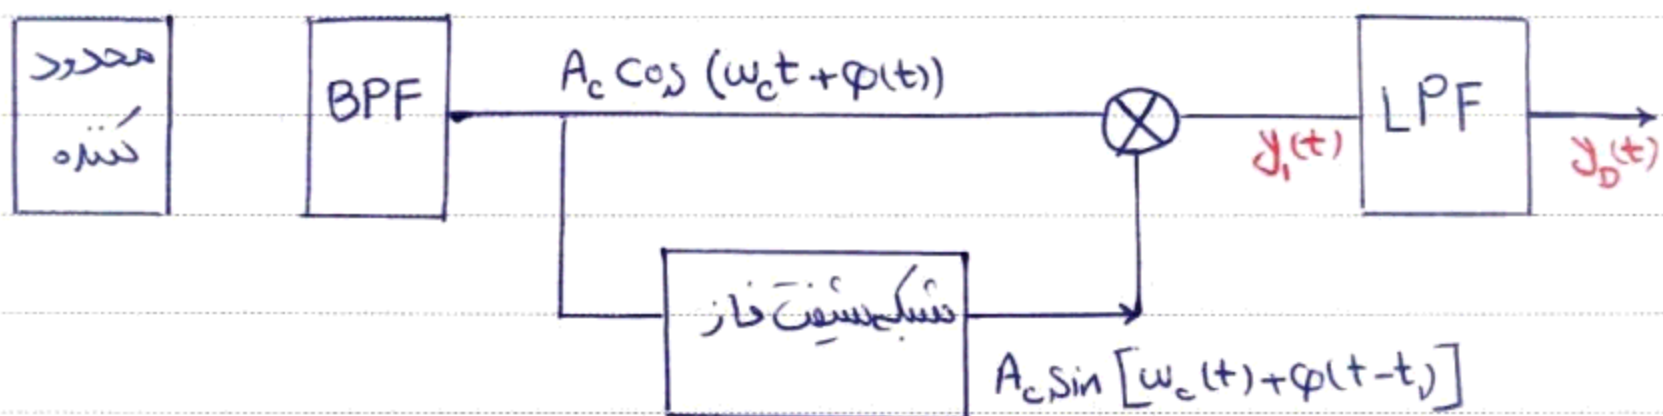 محدود
کننده
BPF
A_c cos (ω_c t + φ(t))
LPF
y_1(t)
y_D(t)
شبکه شیفت فاز
A_c sin [ω_c(t) + φ(t - t_1)]